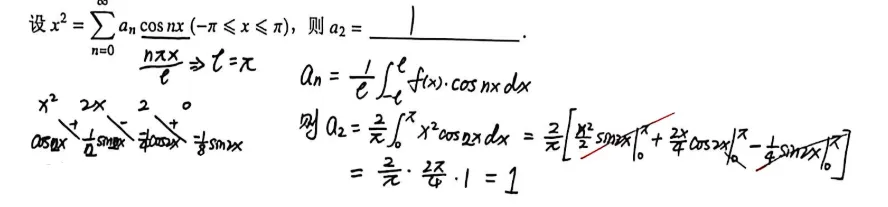 设 x² = ∑_{n=0}^{∞} aₙ cos nx (−π ⩽ x ⩽ π), 则 a₂ = 1 .
nπx/l ⇒ l = π
aₙ = 1/l ∫_{-l}^{l} f(x)·cos nx dx
x² 2x 2 0
+ − +
cos2x 1/2 sin2x −1/4 cos2x −1/8 sin2x
则 a₂ = 2/π ∫₀^π x² cos2x dx = 2/π [ x²/2 sin2x |₀^π + 2x/4 cos2x |₀^π − 1/4 sin2x |₀^π ]
= 2/π · 2π/4 · 1 = 1